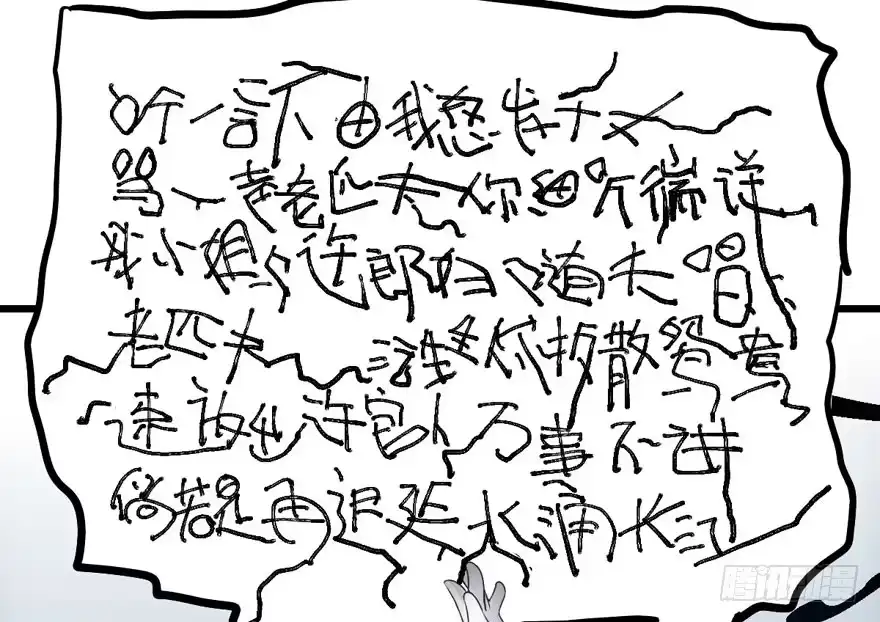 听一言不由我怒发千丈
骂一声老匹夫你细听端详
我小姐与许郎妇唱夫
老匹夫 谁要你拆散鸳鸯
速放出许官人万事不讲
倘若是再迟延水涌长江
腾讯动漫